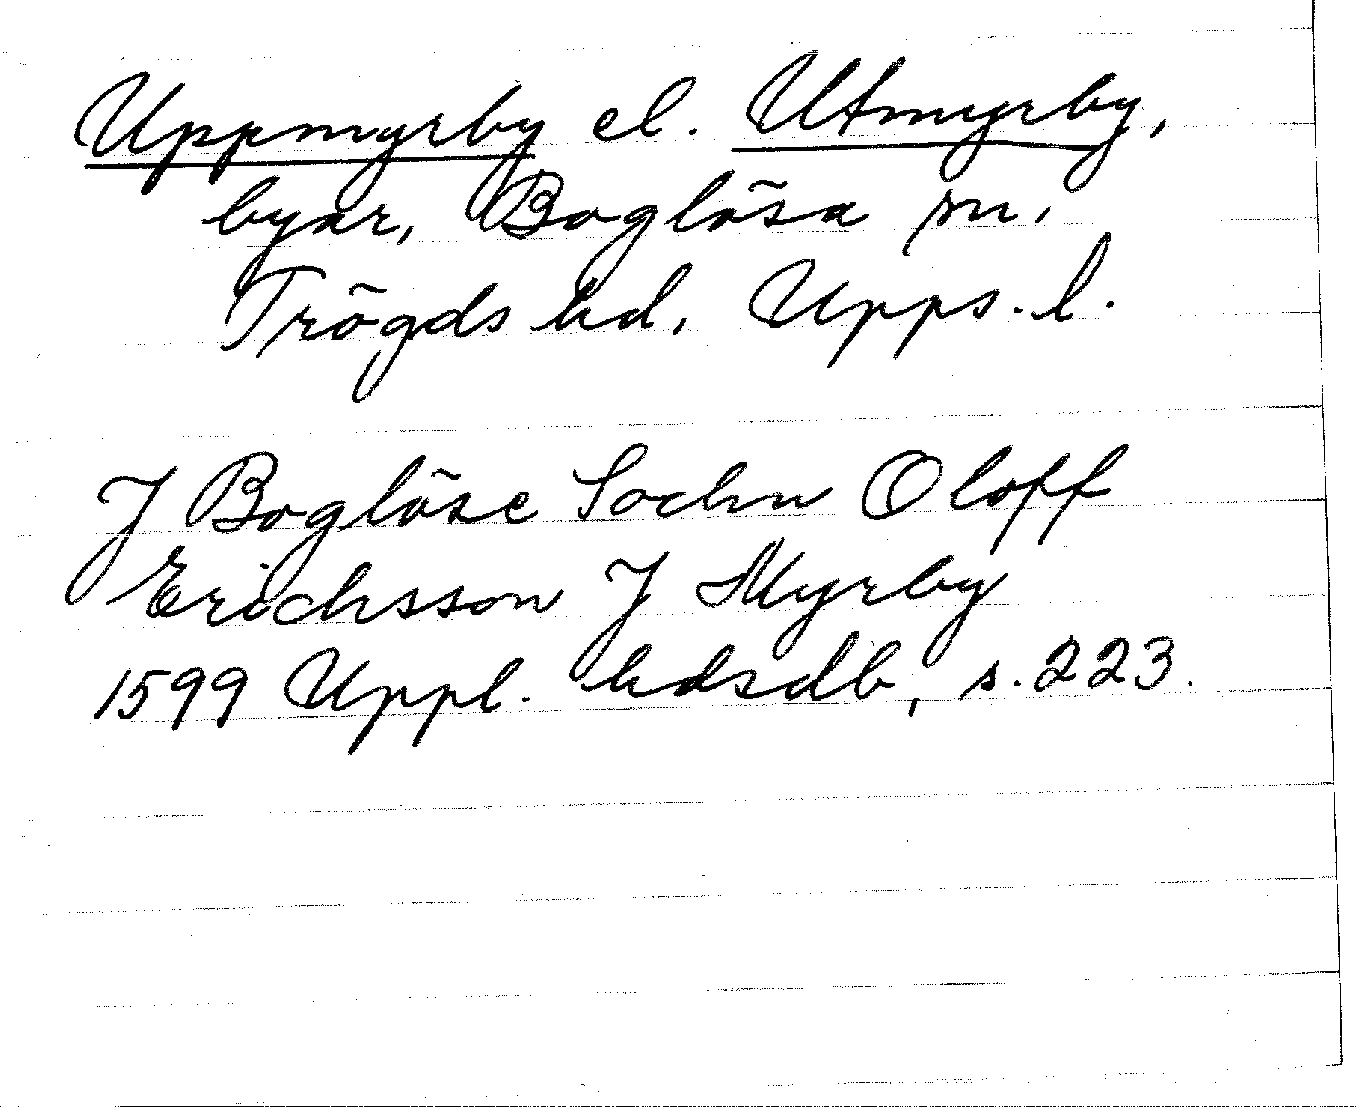 Uppmyrby el. Utmyrby,
byar, Boglösa sn.
Trögds hd, Upps. l.
J Boglöse Sochn Oloff
Erichsson J Myrby
1599 Uppl. hdsdb, s. 223.